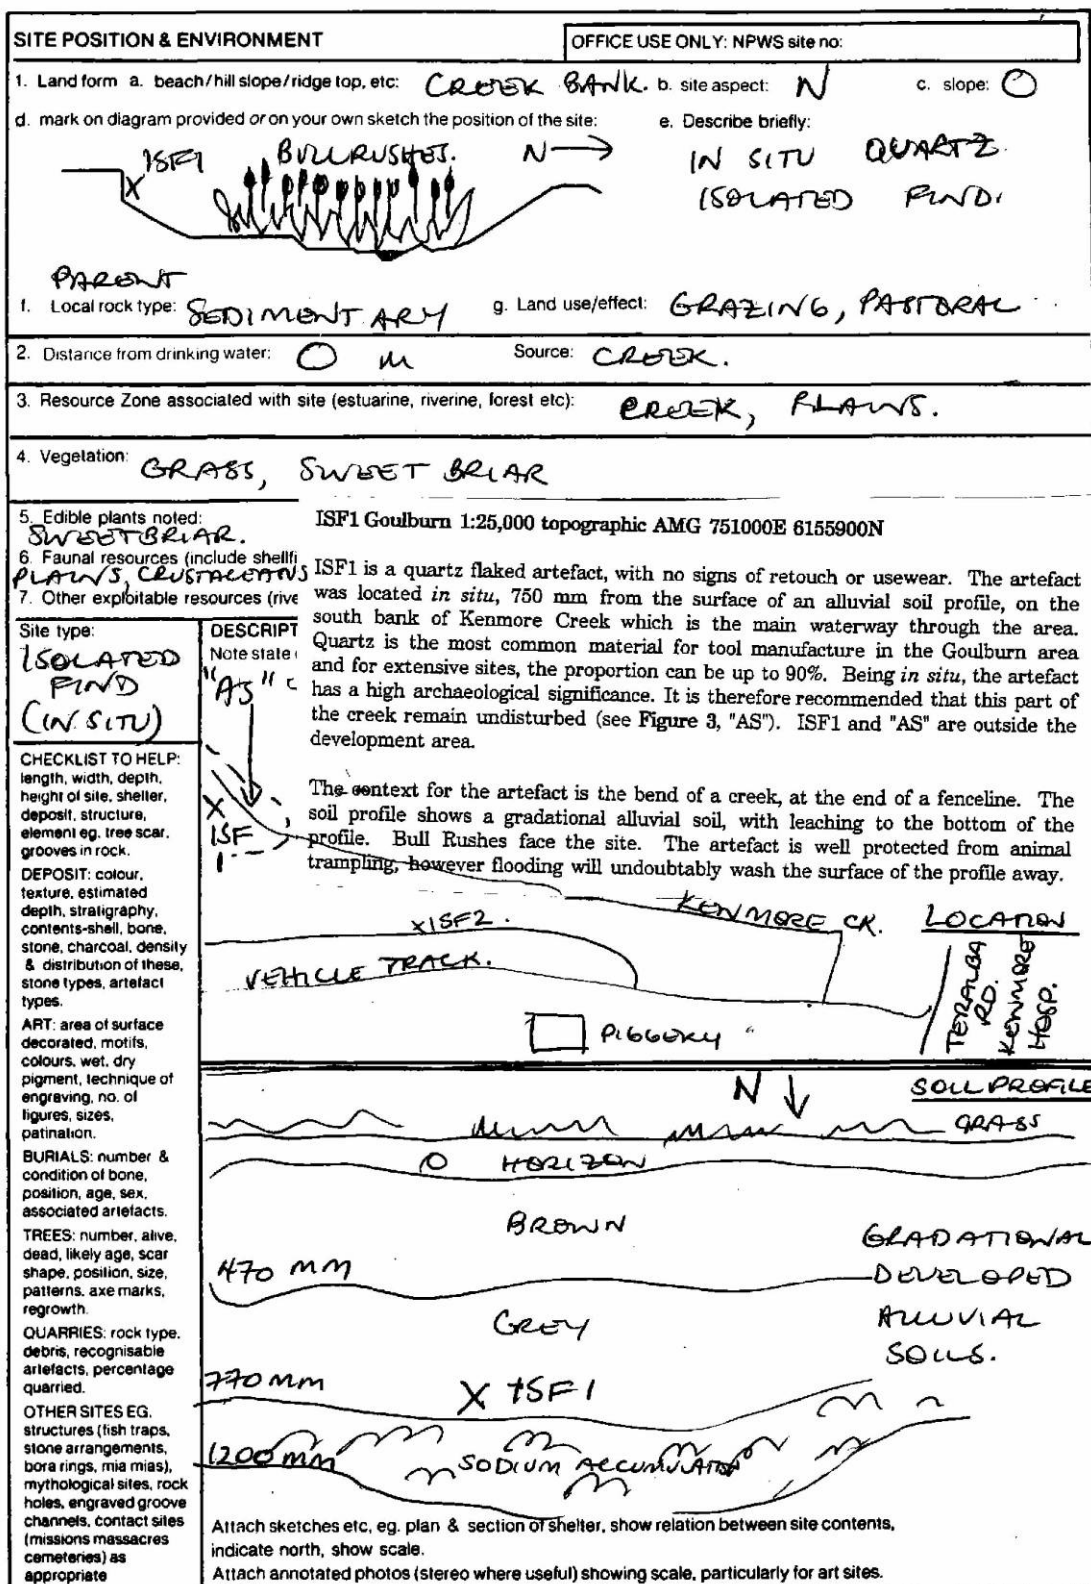 SITE POSITION & ENVIRONMENT
OFFICE USE ONLY: NPWS site no:
1. Land form a. beach/hill slope/ridge top, etc: CREEK BANK. b. site aspect: N c. slope: O
d. mark on diagram provided or on your own sketch the position of the site:
e. Describe briefly:
ISF1 BULLRUSHES. N
X
IN SITU QUARTZ
ISOLATED FIND.
PARENT
f. Local rock type: SEDIMENTARY g. Land use/effect: GRAZING, PASTORAL
2. Distance from drinking water: O m Source: CREEK.
3. Resource Zone associated with site (estuarine, riverine, forest etc): CREEK, PLAINS.
4. Vegetation: GRASS, SWEET BRIAR
5. Edible plants noted:
SWEETBRIAR.
6. Faunal resources (include shellfi
PLAINS, CRUSTACEANS
7. Other exploitable resources (rive
ISF1 Goulburn 1:25,000 topographic AMG 751000E 6155900N
ISF1 is a quartz flaked artefact, with no signs of retouch or usewear. The artefact
was located in situ, 750 mm from the surface of an alluvial soil profile, on the
south bank of Kenmore Creek which is the main waterway through the area.
Quartz is the most common material for tool manufacture in the Goulburn area
and for extensive sites, the proportion can be up to 90%. Being in situ, the artefact
has a high archaeological significance. It is therefore recommended that this part of
the creek remain undisturbed (see Figure 3, "AS"). ISF1 and "AS" are outside the
development area.
The context for the artefact is the bend of a creek, at the end of a fenceline. The
soil profile shows a gradational alluvial soil, with leaching to the bottom of the
profile. Bull Rushes face the site. The artefact is well protected from animal
trampling, however flooding will undoubtably wash the surface of the profile away.
Site type:
ISOLATED
FIND
(IN SITU)
DESCRIPT
Note state
"AS"
X
ISF
1
CHECKLIST TO HELP:
length, width, depth,
height of site, shelter,
deposit, structure,
element eg. tree scar,
grooves in rock.
DEPOSIT: colour,
texture, estimated
depth, stratigraphy,
contents-shell, bone,
stone, charcoal, density
& distribution of these,
stone types, artefact
types.
ART: area of surface
decorated, motifs,
colours, wet, dry
pigment, technique of
engraving, no. of
figures, sizes,
patination.
BURIALS: number &
condition of bone,
position, age, sex,
associated artefacts.
TREES: number, alive,
dead, likely age, scar
shape, position, size,
patterns, axe marks,
regrowth.
QUARRIES: rock type,
debris, recognisable
artefacts, percentage
quarried.
OTHER SITES EG.
structures (fish traps,
stone arrangements,
bora rings, mia mias),
mythological sites, rock
holes, engraved groove
channels, contact sites
(missions massacres
cemeteries) as
appropriate
XISF2.
KENMORE CK.
LOCATION
VEHICLE TRACK.
TERALBA
RD.
KENMORE
HOSP.
PIGGERY
N
SOIL PROFILE
GRASS
O HORIZON
BROWN
GRADATIONAL
470 mm
DEVELOPED
GREY
ALLUVIAL
SOILS.
770 mm
X ISF1
1200 mm
SODIUM ACCUMULATION
Attach sketches etc, eg. plan & section of shelter, show relation between site contents,
indicate north, show scale.
Attach annotated photos (stereo where useful) showing scale, particularly for art sites.